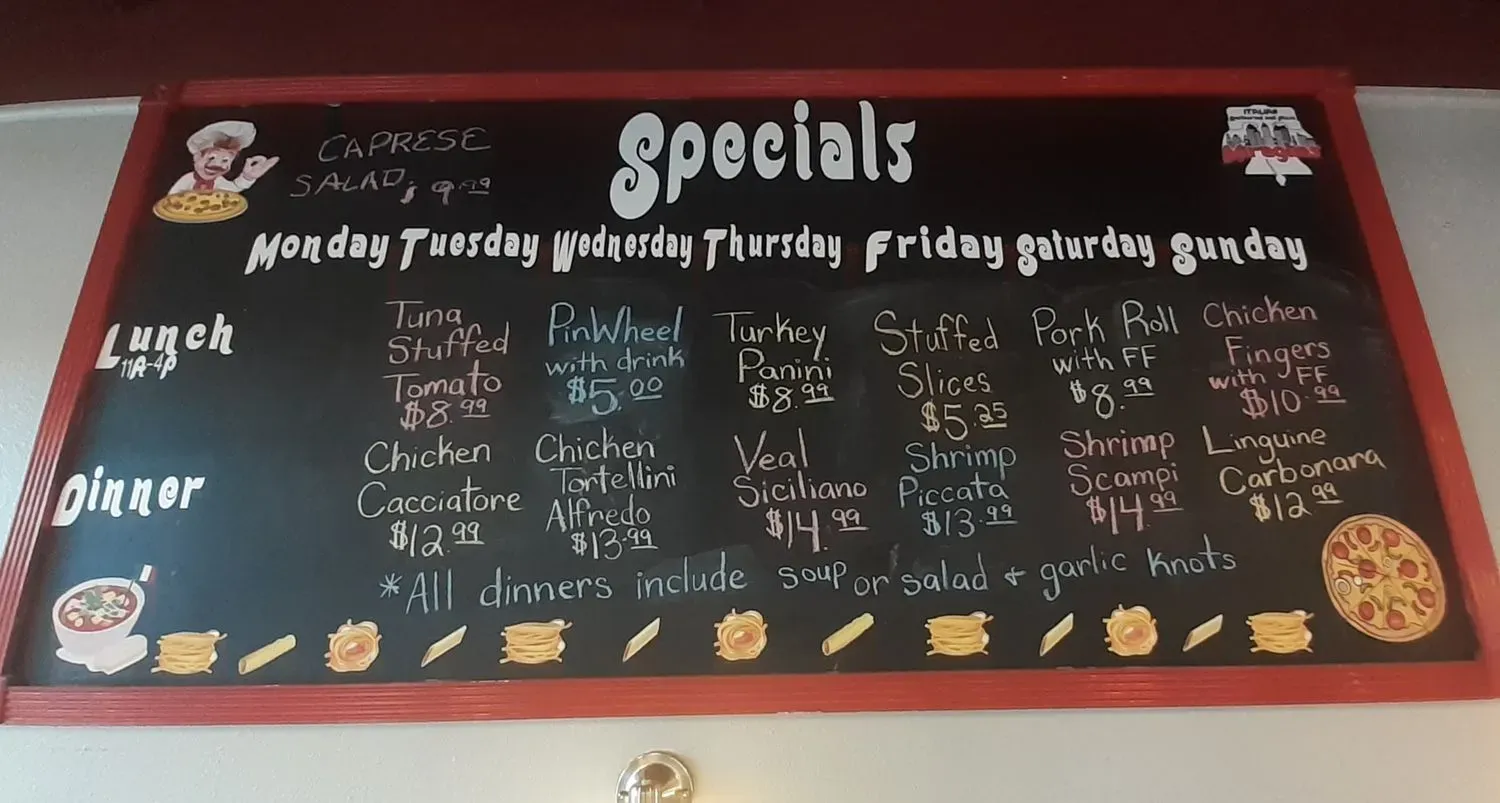 Specials
CAPRESE
SALAD; 9.99
ITALIAN
Monday Tuesday Wednesday Thursday Friday Saturday Sunday
Lunch
11A-4P
Tuna
Stuffed
Tomato
$8.99
PinWheel
with drink
$5.00
Turkey
Panini
$8.99
Stuffed
Slices
$5.25
Pork Roll
with FF
$8.99
Chicken
Fingers
with FF
$10.99
Dinner
Chicken
Cacciatore
$12.99
Chicken
Tortellini
Alfredo
$13.99
Veal
Siciliano
$14.99
Shrimp
Piccata
$13.99
Shrimp
Scampi
$14.99
Linguine
Carbonara
$12.99
*All dinners include soup or salad + garlic knots